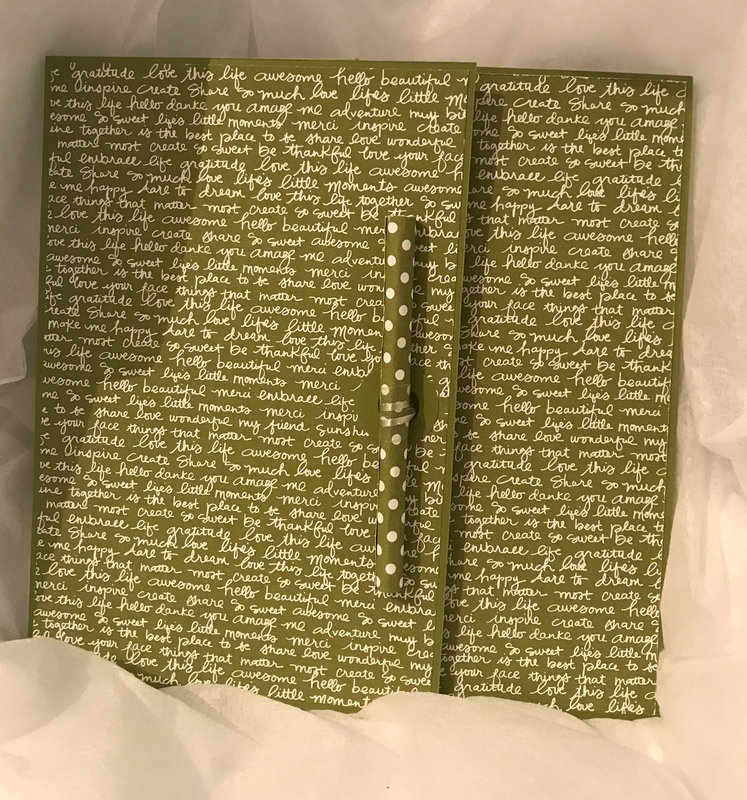 gratitude love this life awesome hello beautiful
me inspire create Share so much love life's little
this life hello danke you amaze me adventure
so sweet life's little moments merci inspire create
together is the best place to be share love wonderful
matter most create so sweet be thankful love your face
embrace life gratitude love this life awesome hello
Share so much love life's little moments awesome
me happy dare to dream love this life together so sweet
face things that matter most create so sweet be thankful
love this life awesome hello beautiful merci
merci inspire create share so sweet awesome so
this life hello danke you amaze me
so sweet life's little moments merci
together is the best place to be share love
love your face things that matter most
gratitude love this life awesome hello
create Share so much love life's little
make me happy dare to dream love this life
most create so sweet be thankful love
life awesome hello beautiful merci
awesome so sweet life's little moments merci
awesome hello beautiful merci embrace life
so sweet life's little moments merci
to be share love wonderful my friend
your face things that matter most create so
gratitude love this life awesome hello
me inspire create Share so much love life's
this life hello danke you amaze me adventure
so sweet life's little moments merci
together is the best place to be share love
matter most create so sweet be thankful love your
embrace life gratitude love this life awesome
Share so much love life's little Moments
me happy dare to dream love this life
face things that matter most create so sweet be thankful
love this life awesome hello beautiful merci
merci inspire create share so sweet awesome so sweet
this life hello danke you amaze me adventure
awesome so sweet life's little moments merci inspire
together is the best place to be share love wonderful my
your face things that matter most create so sweet
gratitude love this life awesome hello
much love life's little
gratitude love this life
inspire create Share so much
life hello danke you amaze
so sweet life's little
together is the best place to
most create so sweet be
embrace life gratitude
so much love life's
me happy dare to dream
love this life awesome
merci inspire create share
this life hello danke you amaze
awesome so sweet life's little
together is the best place to be
your face things that matter
gratitude love this life
Share so much love life's
me happy dare to
create so sweet be
this life awesome hello
awesome so sweet life's
hello beautiful merci
so sweet life's little
share love wonderful my
face things that matter
gratitude love this life
inspire create Share so much
life hello danke you amaze
so sweet life's little
together is the best place
most create so sweet be
embrace life gratitude
so much love life's
me happy dare to dream
face things that matter
love this life awesome
merci inspire create share
life hello danke you amaze
awesome so sweet life's little
together is the best place to be
your face things that matter
gratitude love this life
much love life's